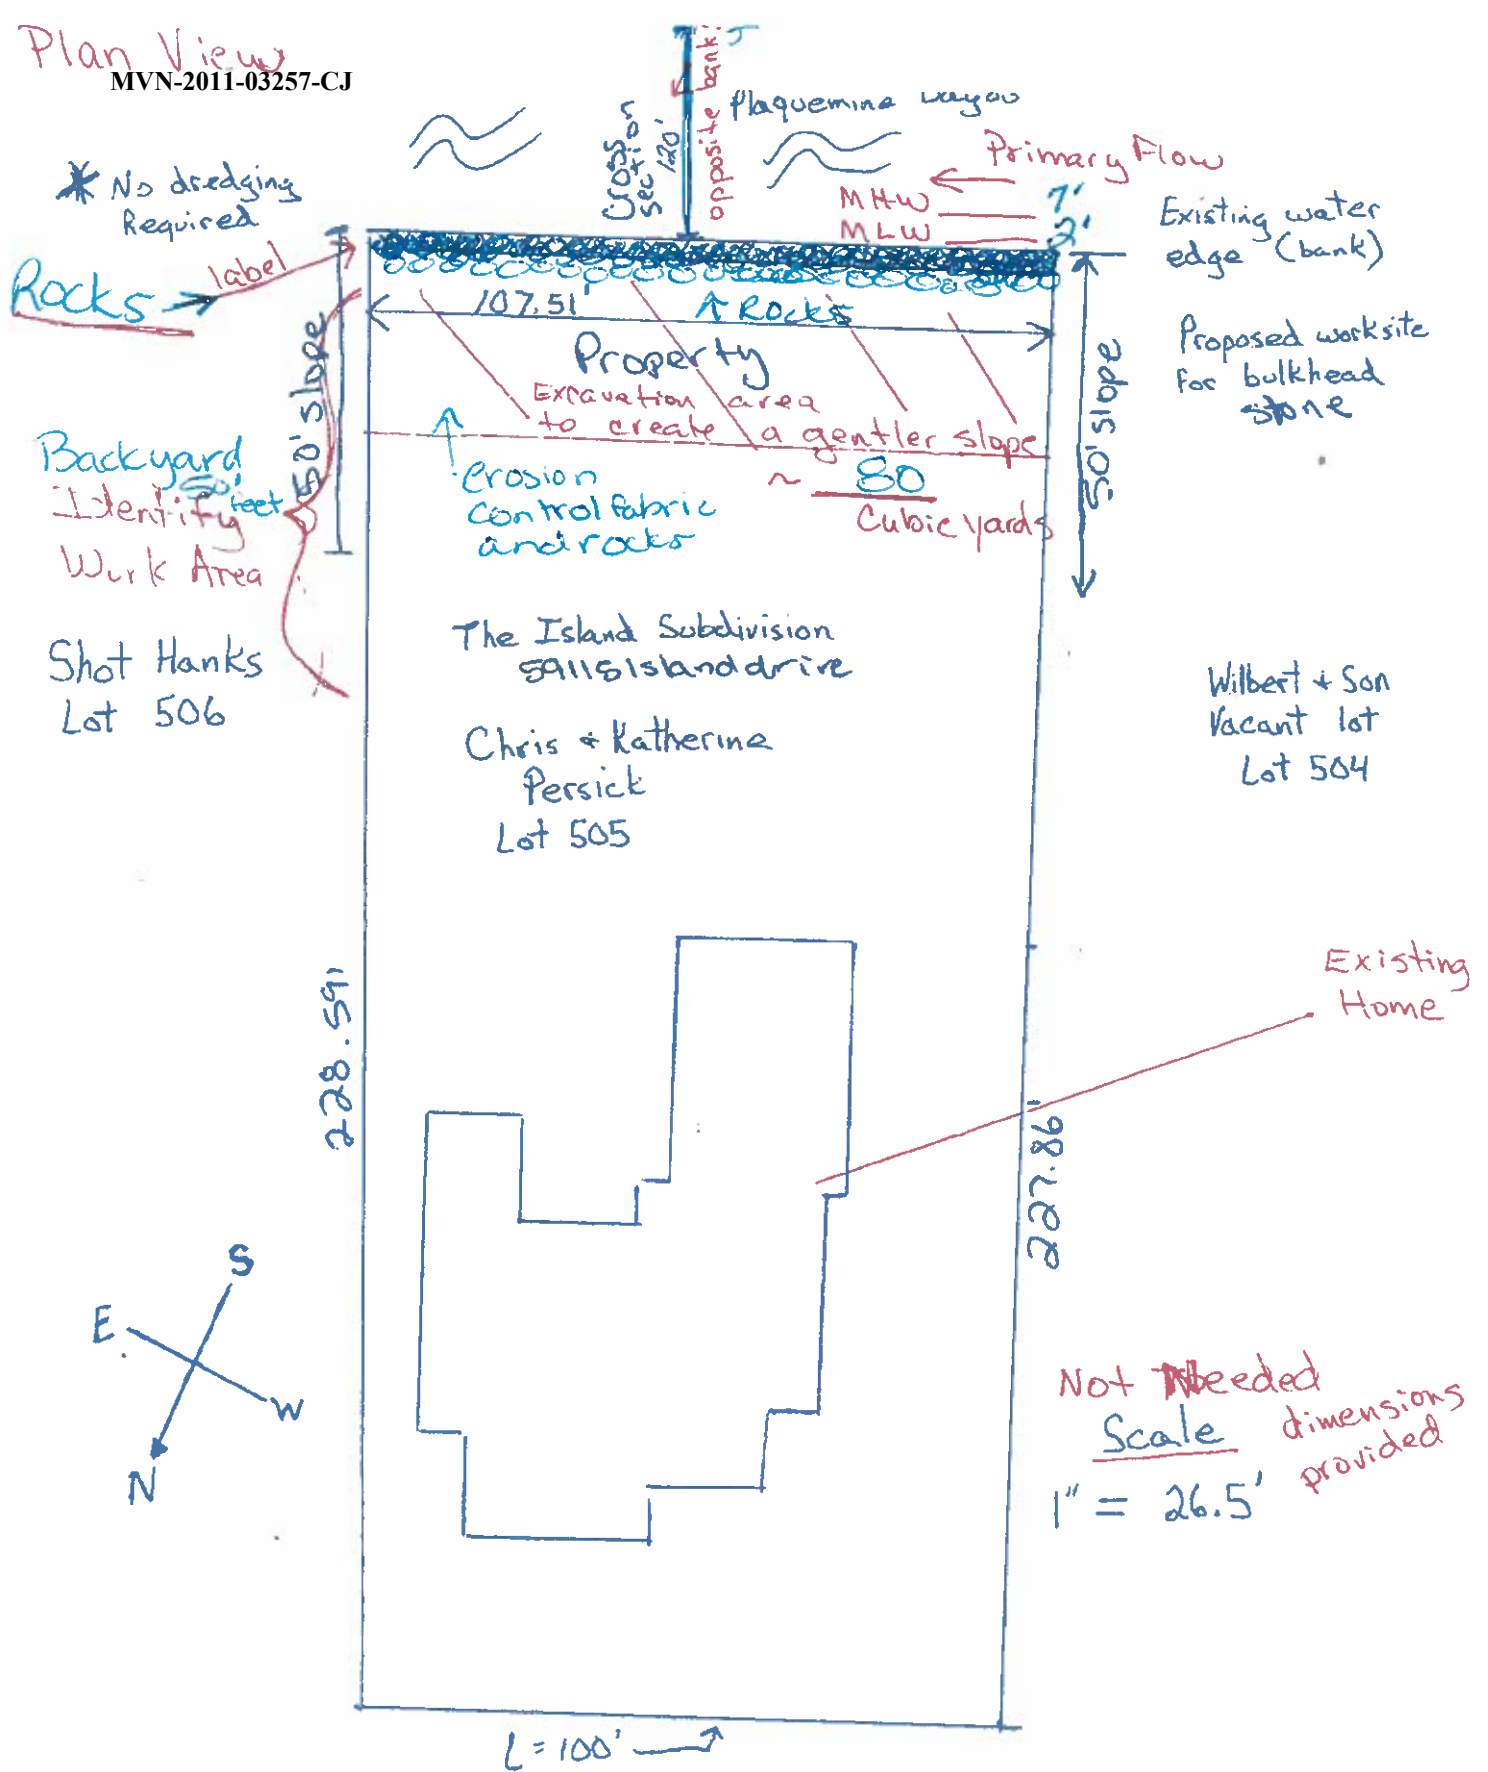 Plan View
MVN-2011-03257-CJ
* No dredging
Required
Rocks
label
Cross
section
120'
opposite bank
Plaquemine
Primary Flow
MHW 7'
MLW 2'
Existing water
edge (bank)
Proposed worksite
for bulkhead
stone
107.51'
Rocks
Property
Excavation area
to create a gentler slope
~ 80
Cubic Yards
erosion
control fabric
and rocks
50' slope
50' slope
Backyard
50'
feet
Identify
Work Area
Shot Hanks
Lot 506
The Island Subdivision
59115 Island drive
Chris & Katherine
Persick
Lot 505
Wilbert & Son
Vacant lot
Lot 504
Existing
Home
228.59'
227.86'
S
E
W
N
Not Needed
Scale
dimensions
provided
1" = 26.5'
L = 100'